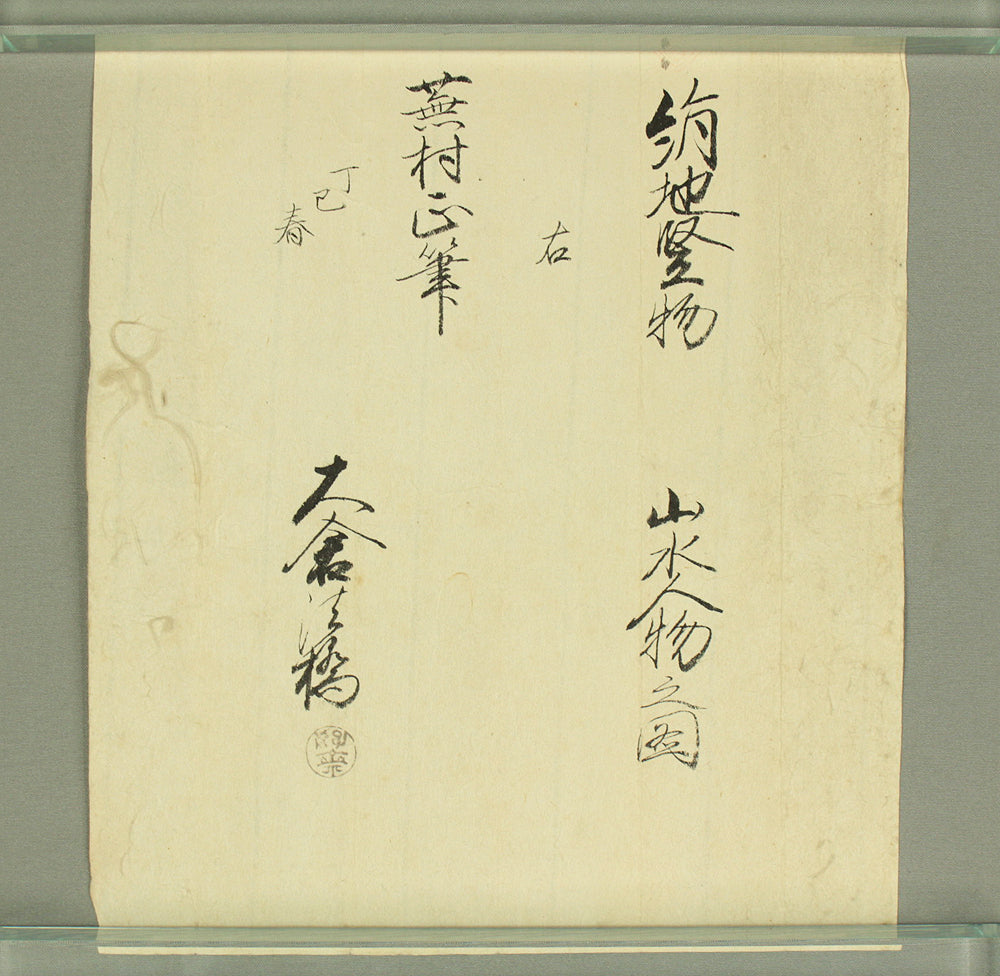 絹地竪物
山水人物之図
右
蕪村正筆
丁巳
春
大倉法橋